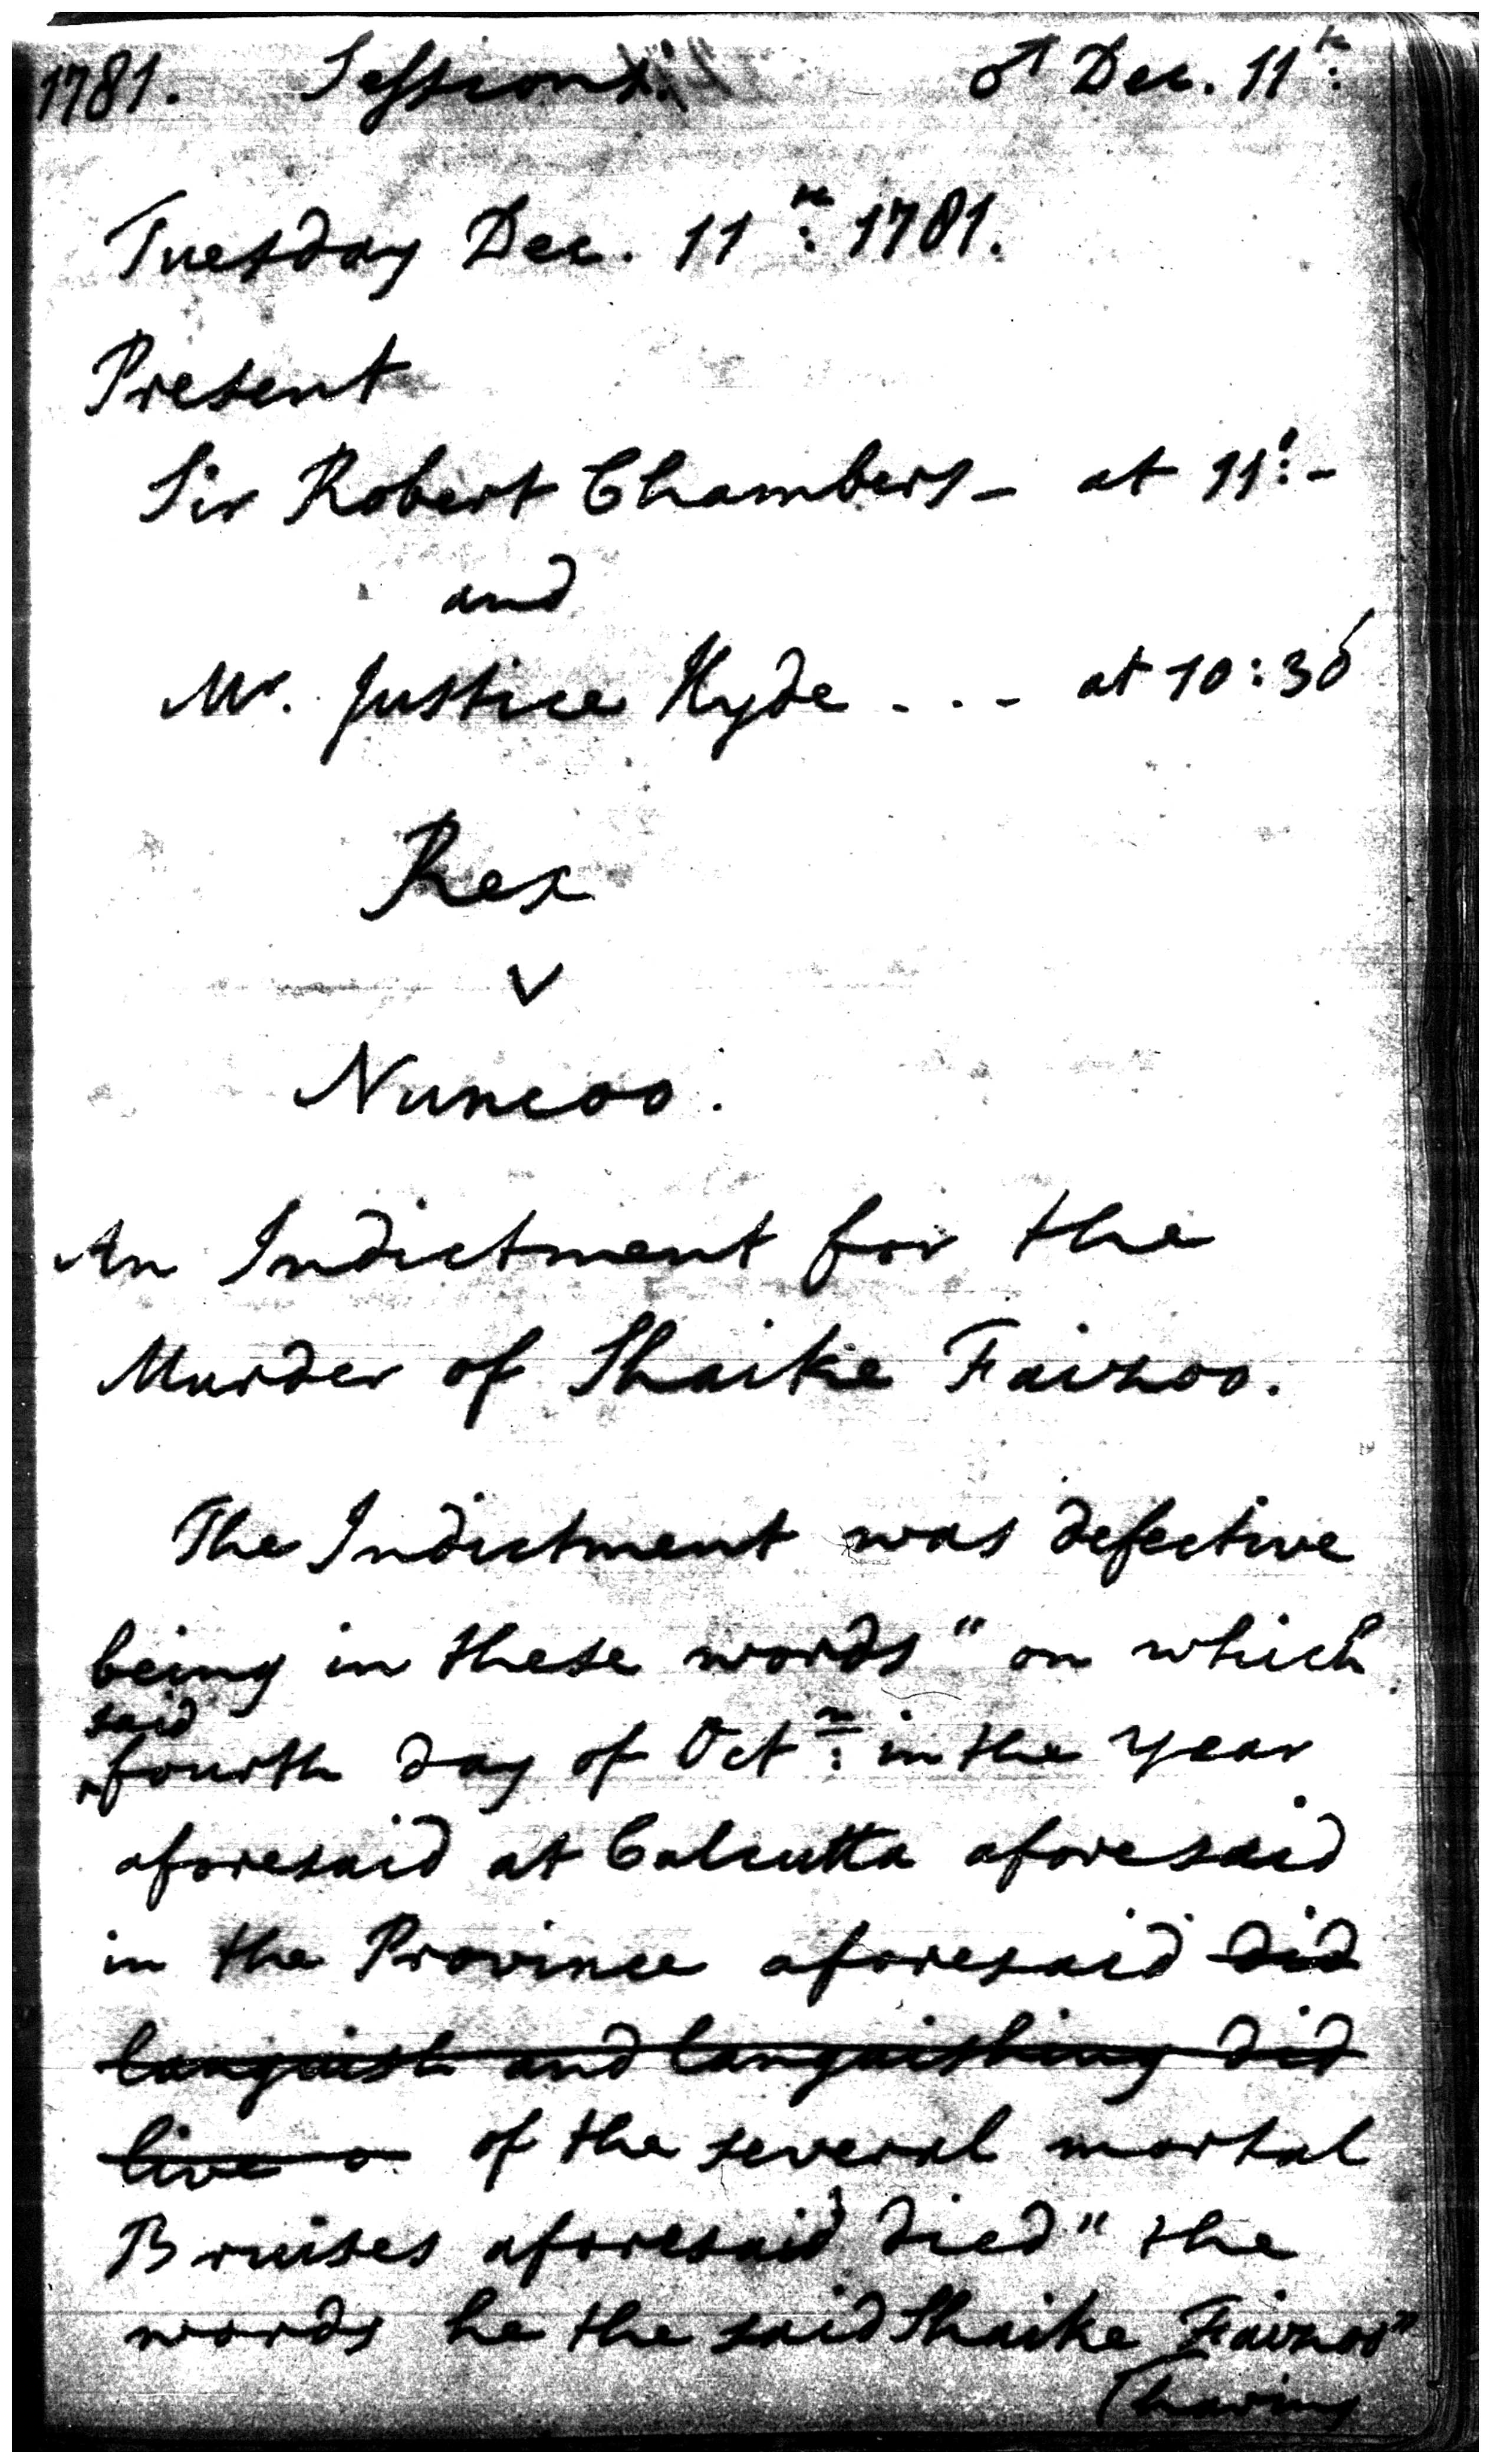 1781. Sessions. ♂ Dec. 11th:
Tuesday Dec. 11th: 1781.
Present
Sir Robert Chambers - at 11:-
and
Mr. Justice Hyde . . . - at 10:30
Rex
v
Nuncoo.
An Indictment for the
Murder of Shaike Fairzoo.
The Indictment was defective
being in these words "on which
said
fourth day of Octr: in the year
aforesaid at Calcutta aforesaid
in the Province aforesaid did
languish and languishing did
live o of the several mortal
Bruises aforesaid died" the
words he the said Shaike Fairzoo"
(having